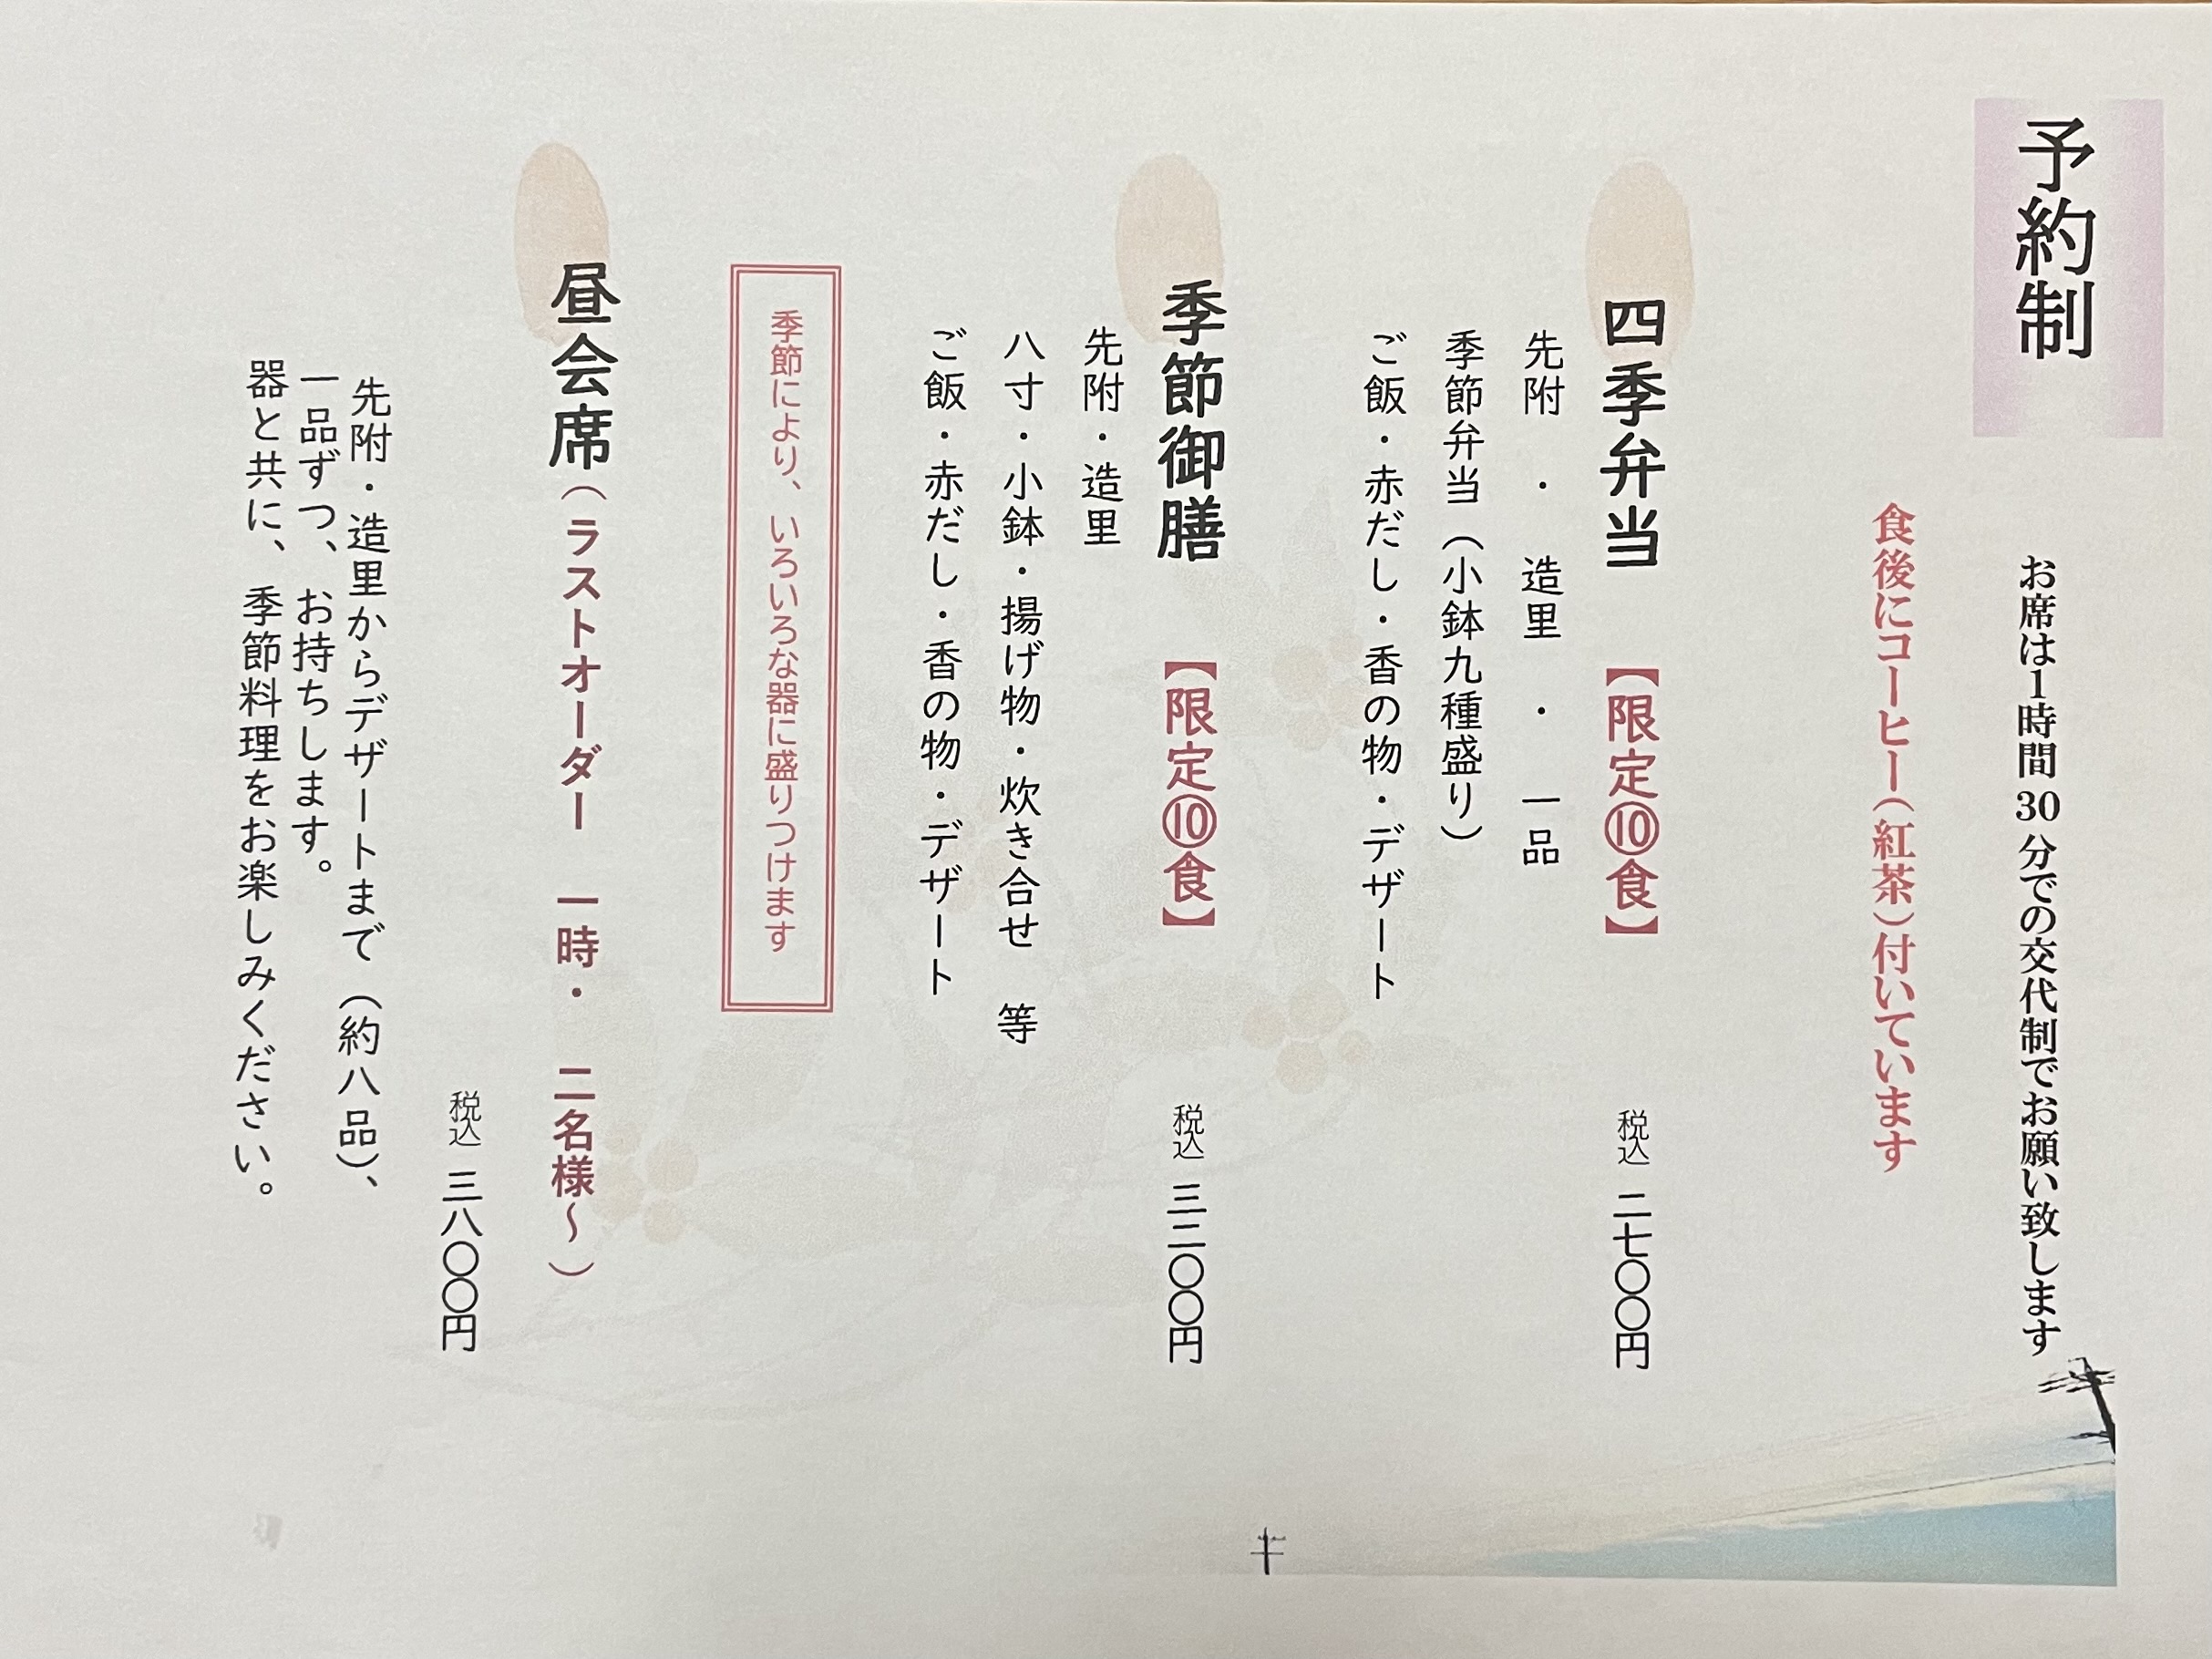 予約制
お席は1時間30分での交代制でお願い致します
食後にコーヒー(紅茶)付いています
四季弁当 【限定⑩食】
先附 ・ 造里 ・ 一品
季節弁当(小鉢九種盛り)
ご飯・赤だし・香の物・デザート
税込 二七〇〇円
季節御膳 【限定⑩食】
先附・造里
八寸・小鉢・揚げ物・炊き合せ 等
ご飯・赤だし・香の物・デザート
税込 三二〇〇円
季節により、いろいろな器に盛りつけます
昼会席(ラストオーダー 一時・ 二名様～)
税込 三八〇〇円
先附・造里からデザートまで(約八品)、
一品ずつ、お持ちします。
器と共に、季節料理をお楽しみください。